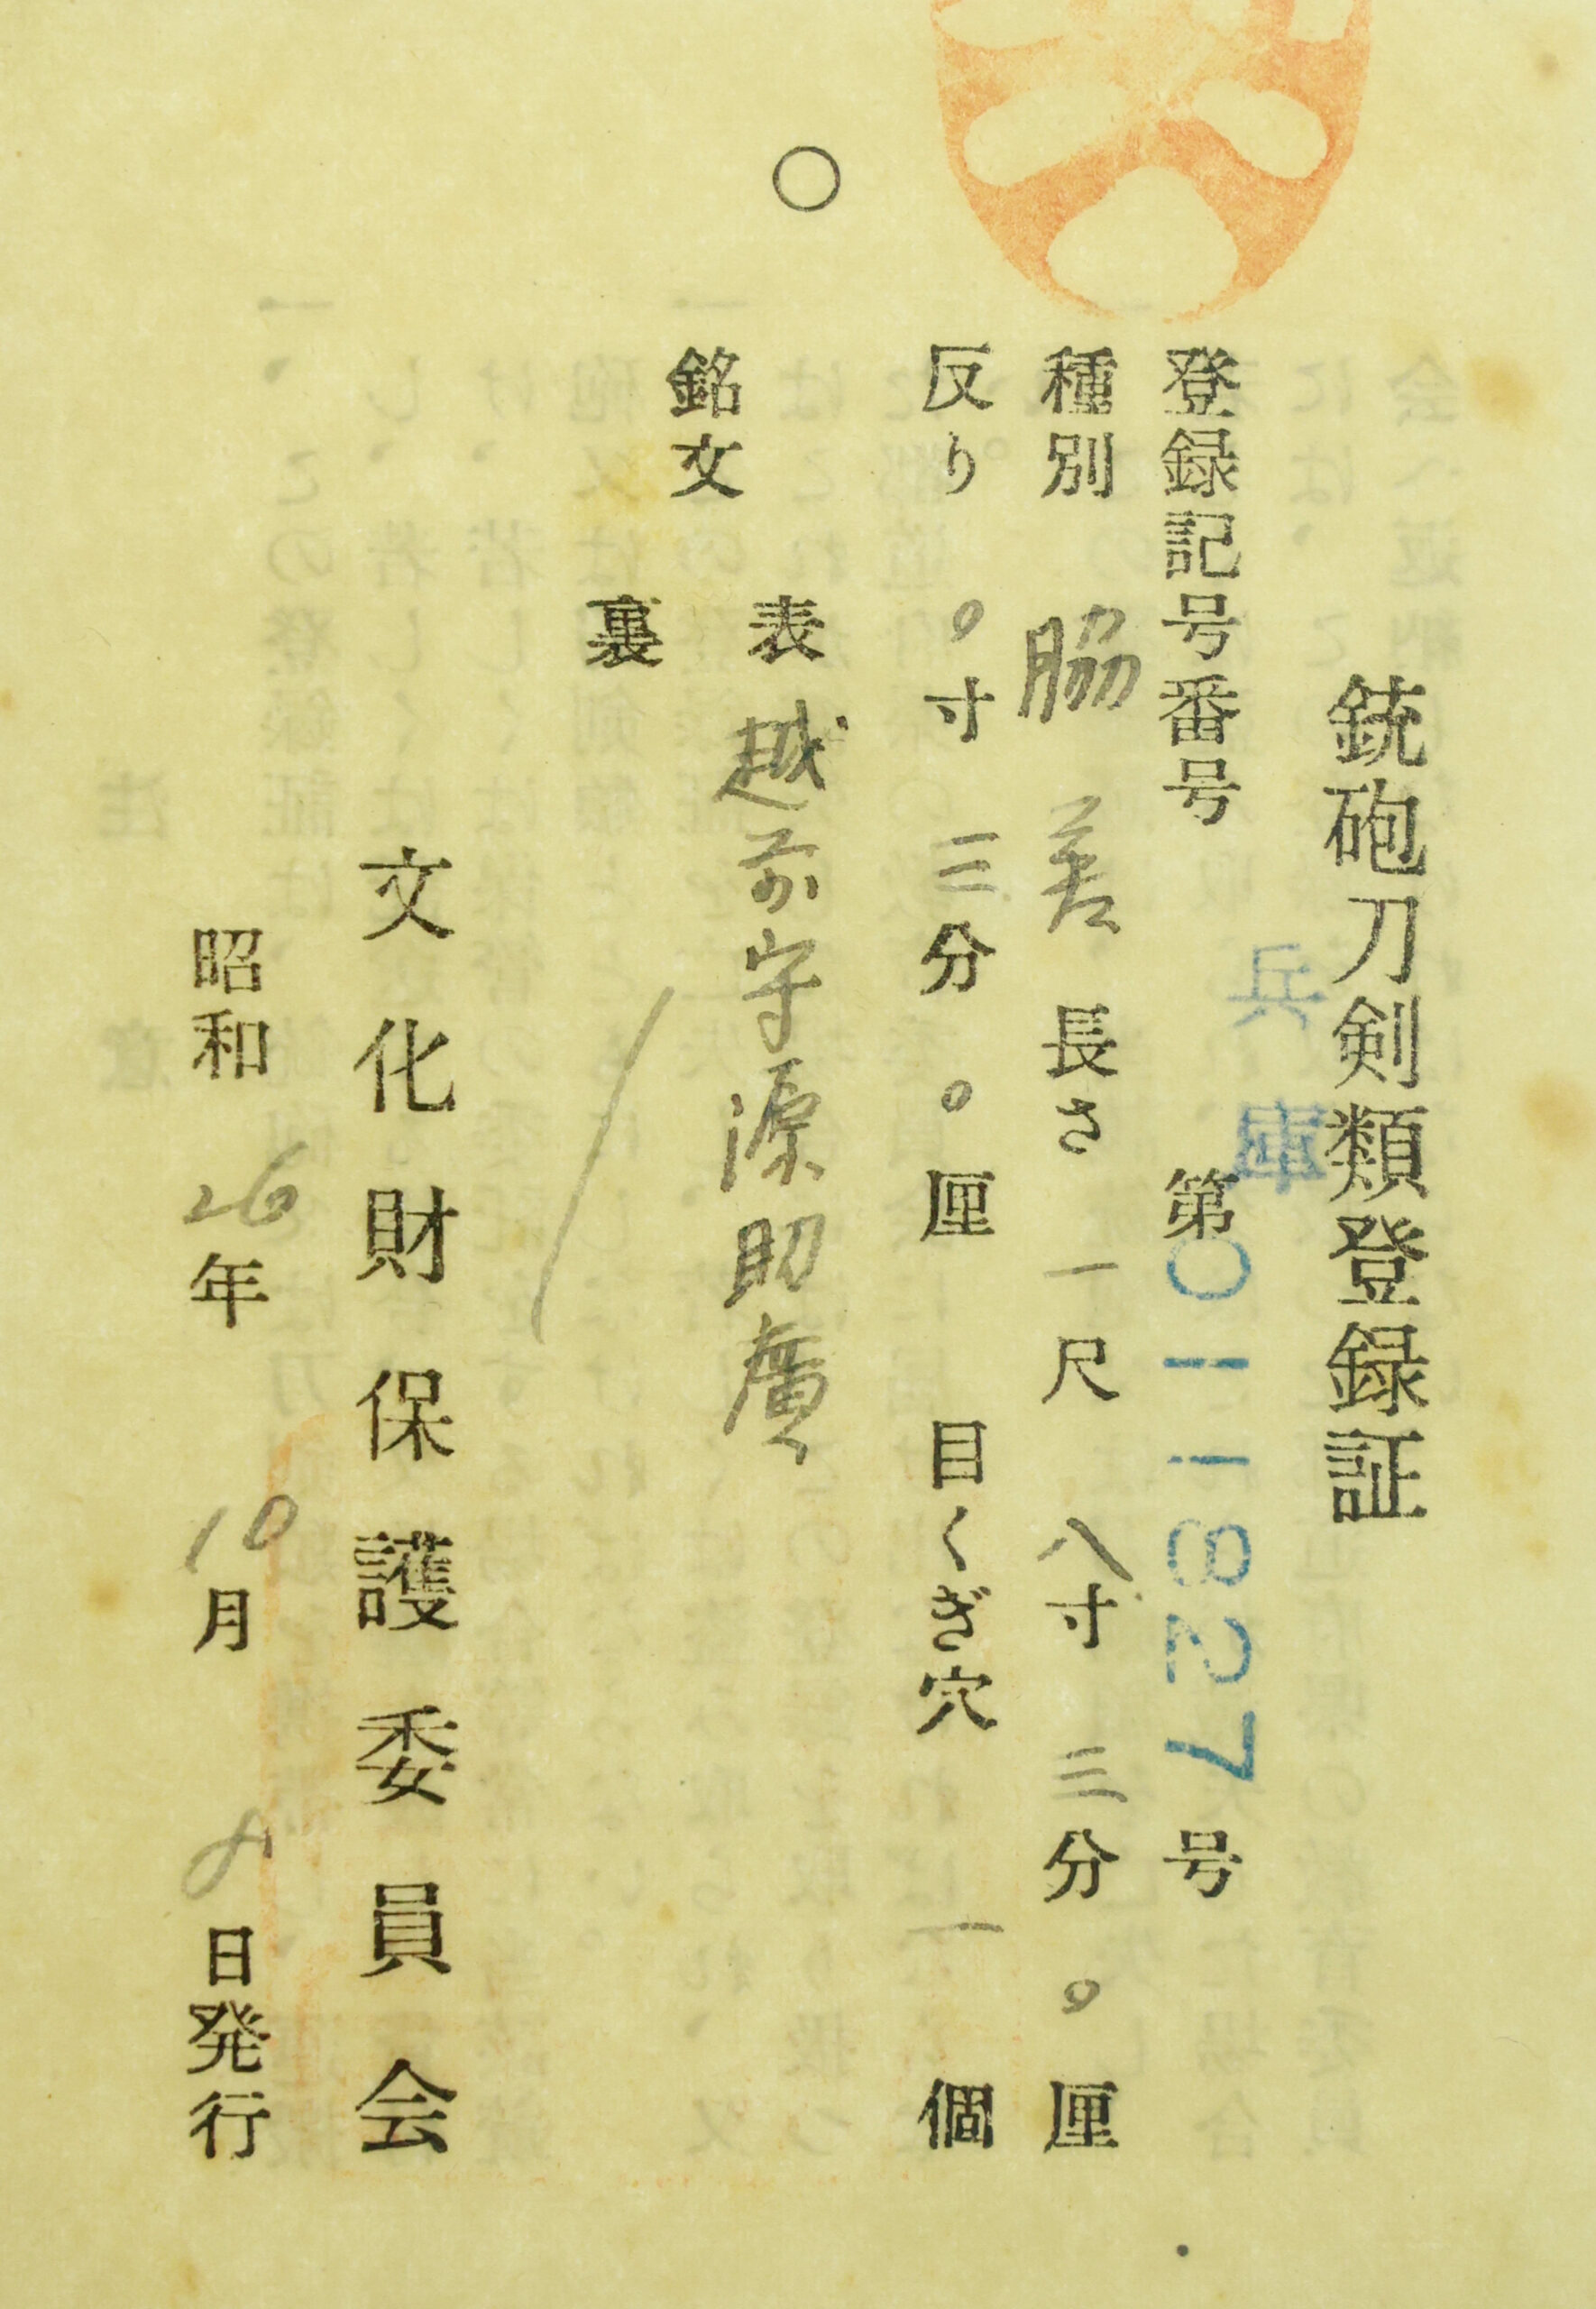 銃砲刀剣類登録証
兵庫
登録記号番号 第011827号
種別 脇差 長さ 一尺 八寸 三分 〇厘
反り 〇寸 三分 〇厘 目くぎ穴 一 個
銘文
表 越前守源助廣
裏
文化財保護委員会
昭和 26年 10月 8日発行